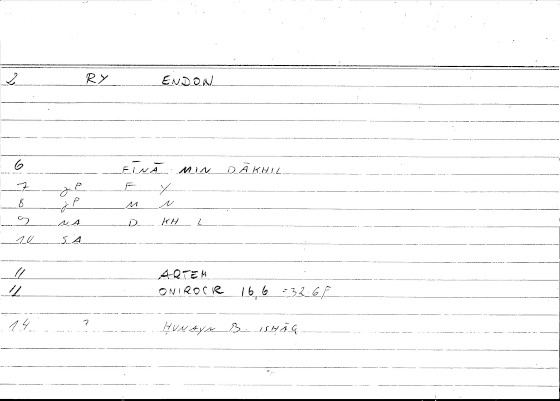 2 RY ENDON
6 FĪNĀ MIN DĀKHIL
7 gP F Y
8 gP M N
9 NA D KH L
10 SA
11 ARTEM
12 ONIROCR 16,6 =32 6F
14 ? ḤUNAYN B ISḤĀQ